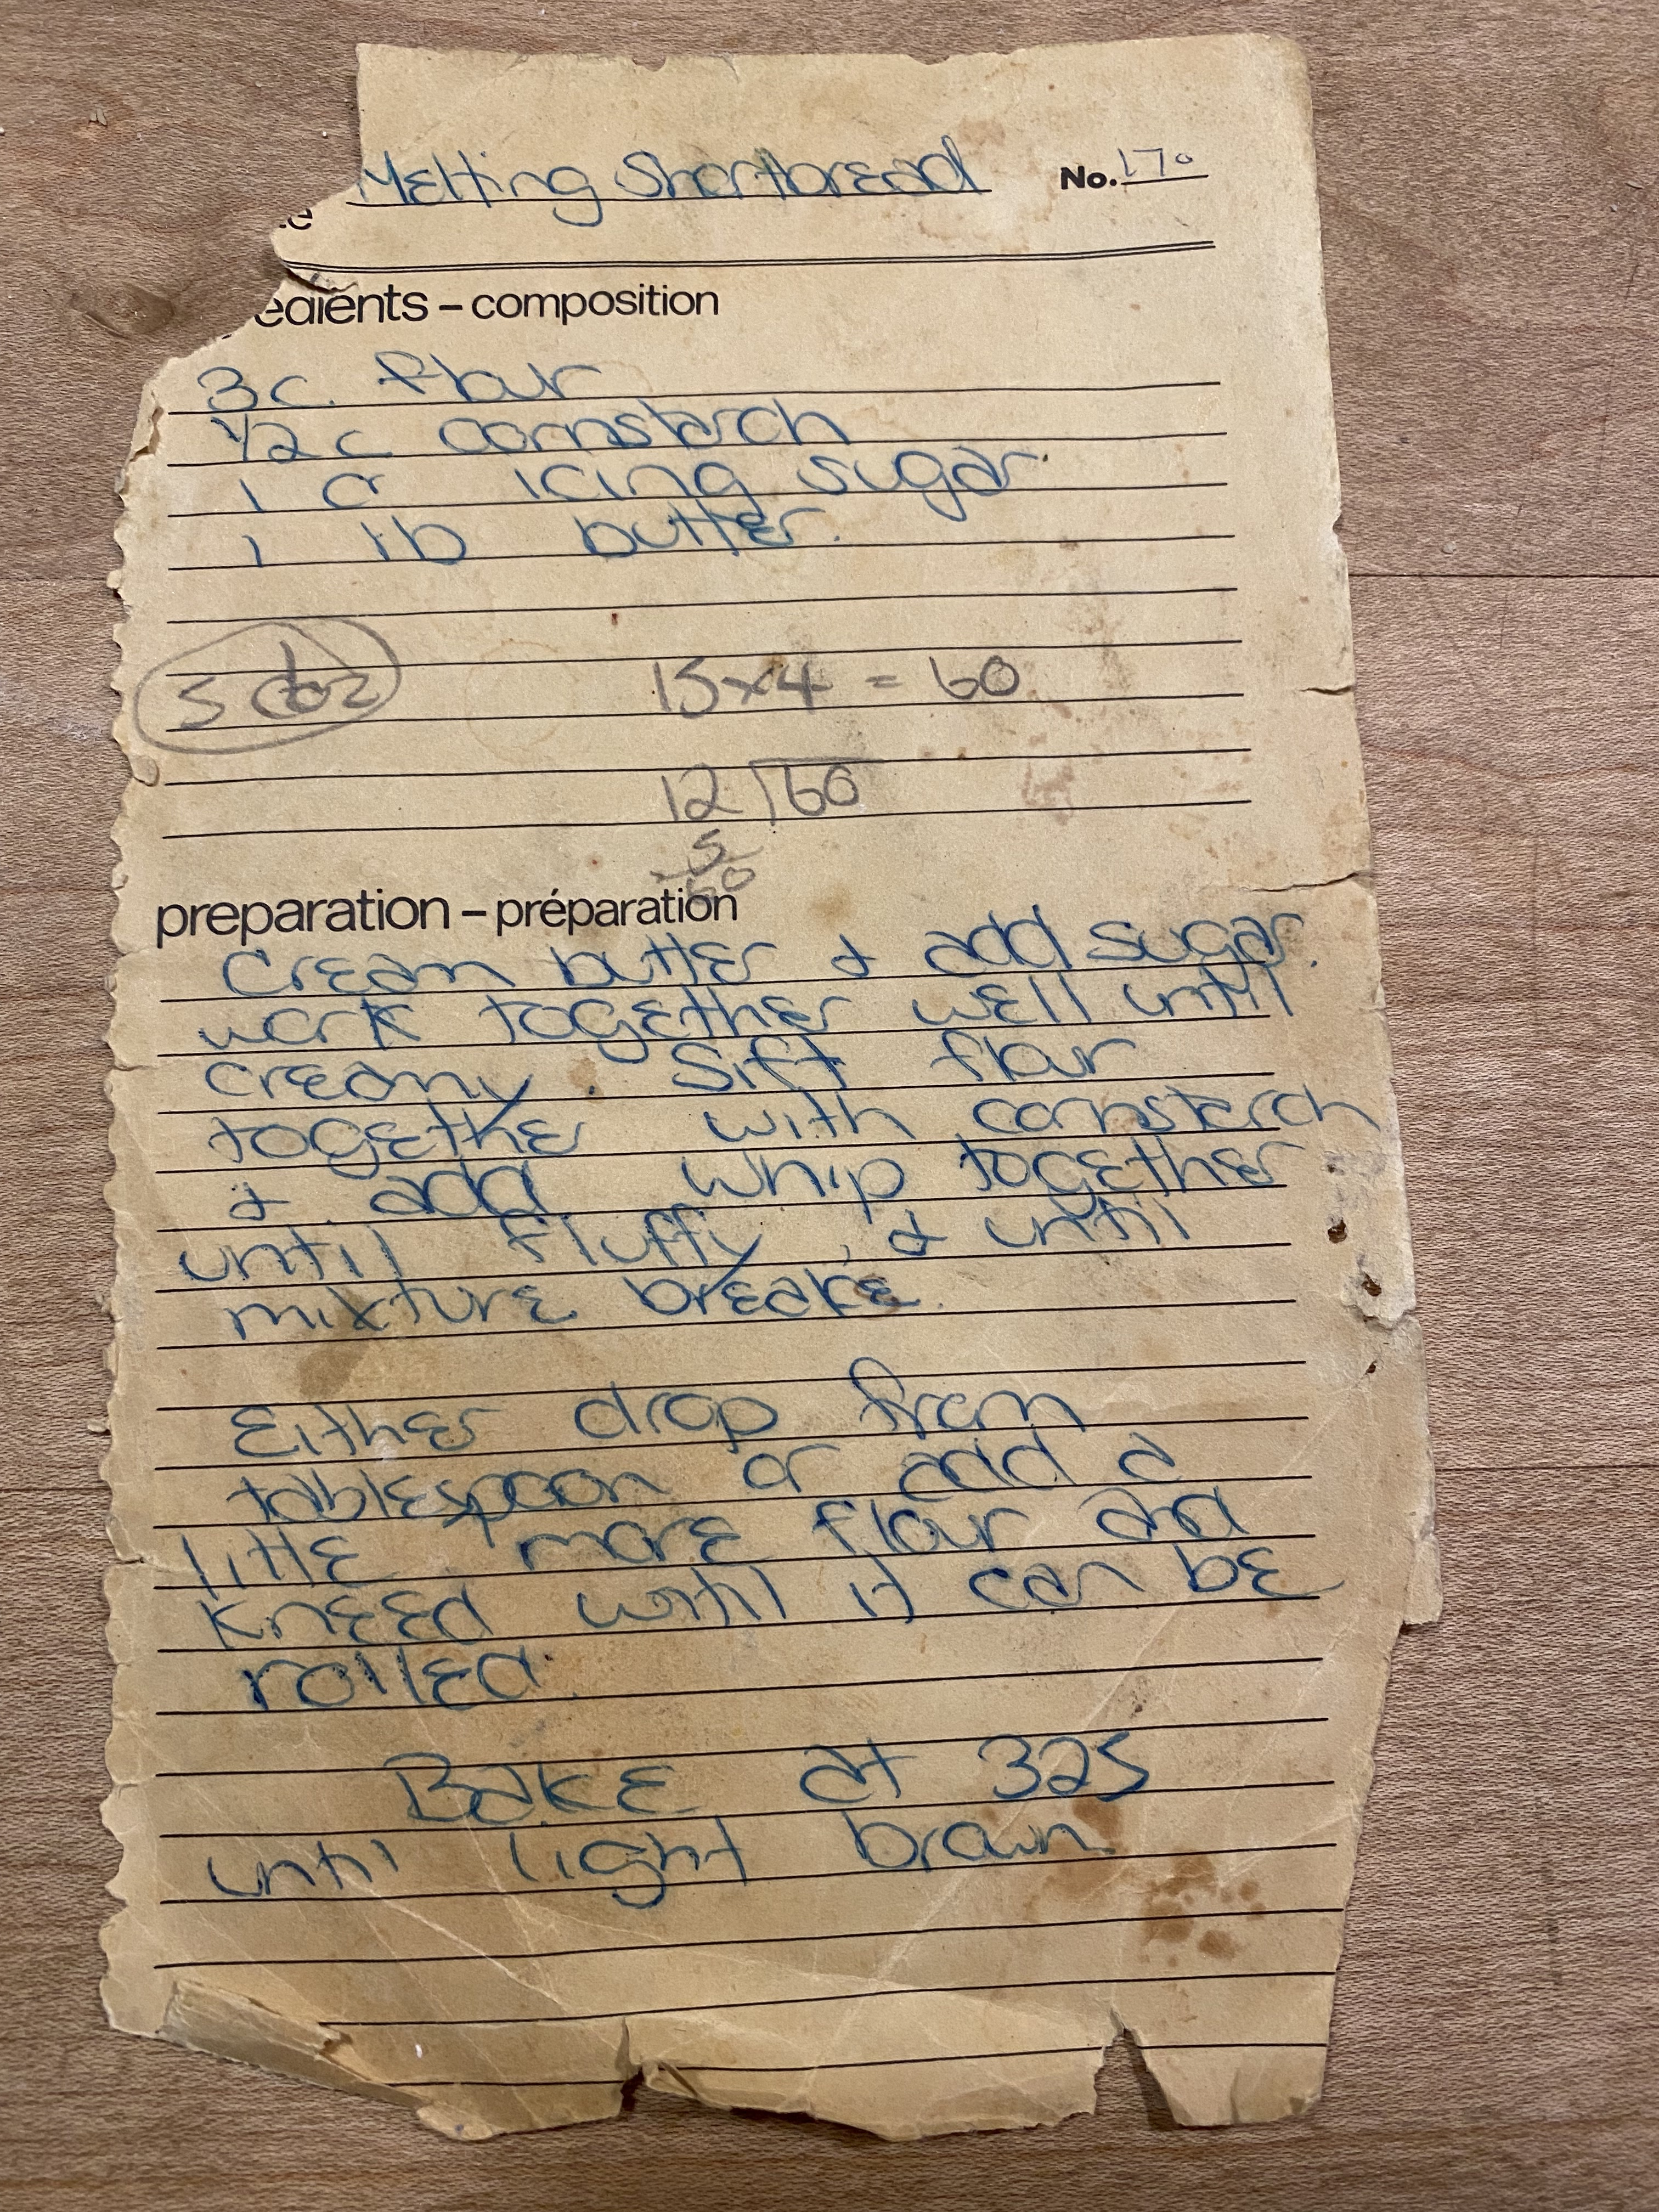 Melting Shortbread No. 170
te
edients – composition
3 c. flour
1/2 c cornstarch
1 c icing sugar
1 lb butter.
5 doz 15 x 4 = 60
12 ) 60
5
60
preparation – préparation
Cream butter & add sugar.
work together well until
creamy. Sift flour
together with cornstarch
& add whip together
until fluffy, & until
mixture breake.
Either drop from
tablespoon or add a
little more flour and
kneed until it can be
rolled.
Bake at 325
until light brown